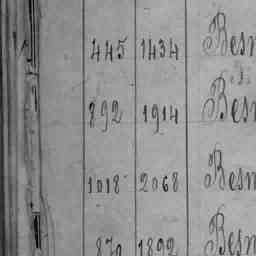 445 1434 Besn
892 1914 Besn
1018 2068 Besn
870 1892 Besn